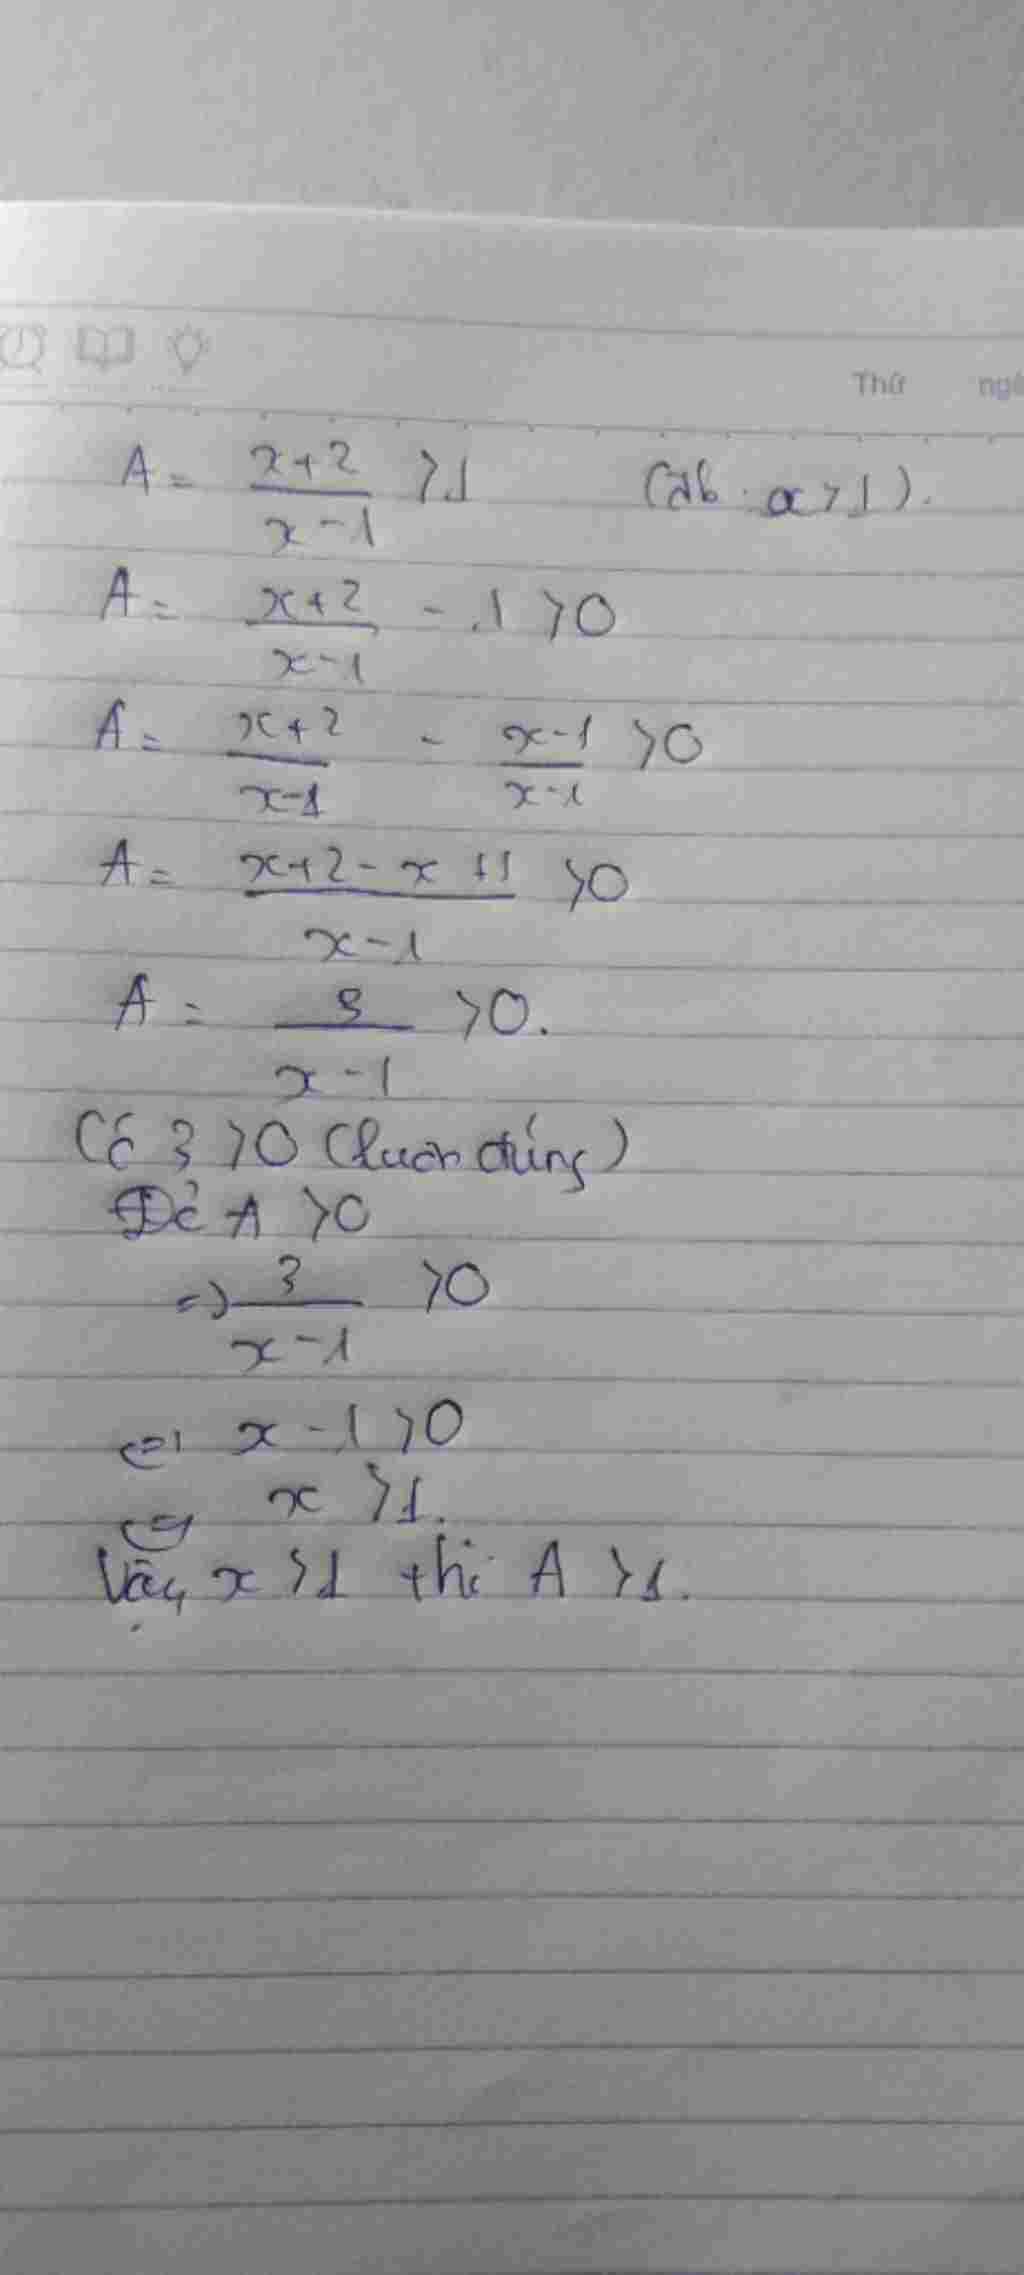 Thứ ngà
A = \frac{x+2}{x-1} > 1 (đk: x > 1).
A = \frac{x+2}{x-1} - 1 > 0
A = \frac{x+2}{x-1} - \frac{x-1}{x-1} > 0
A = \frac{x+2-x+1}{x-1} > 0
A = \frac{3}{x-1} > 0.
Có 3 > 0 (luôn đúng)
Để A > 0
=> \frac{3}{x-1} > 0
<=> x - 1 > 0
<=> x > 1.
Vậy x > 1 thì A > 1.